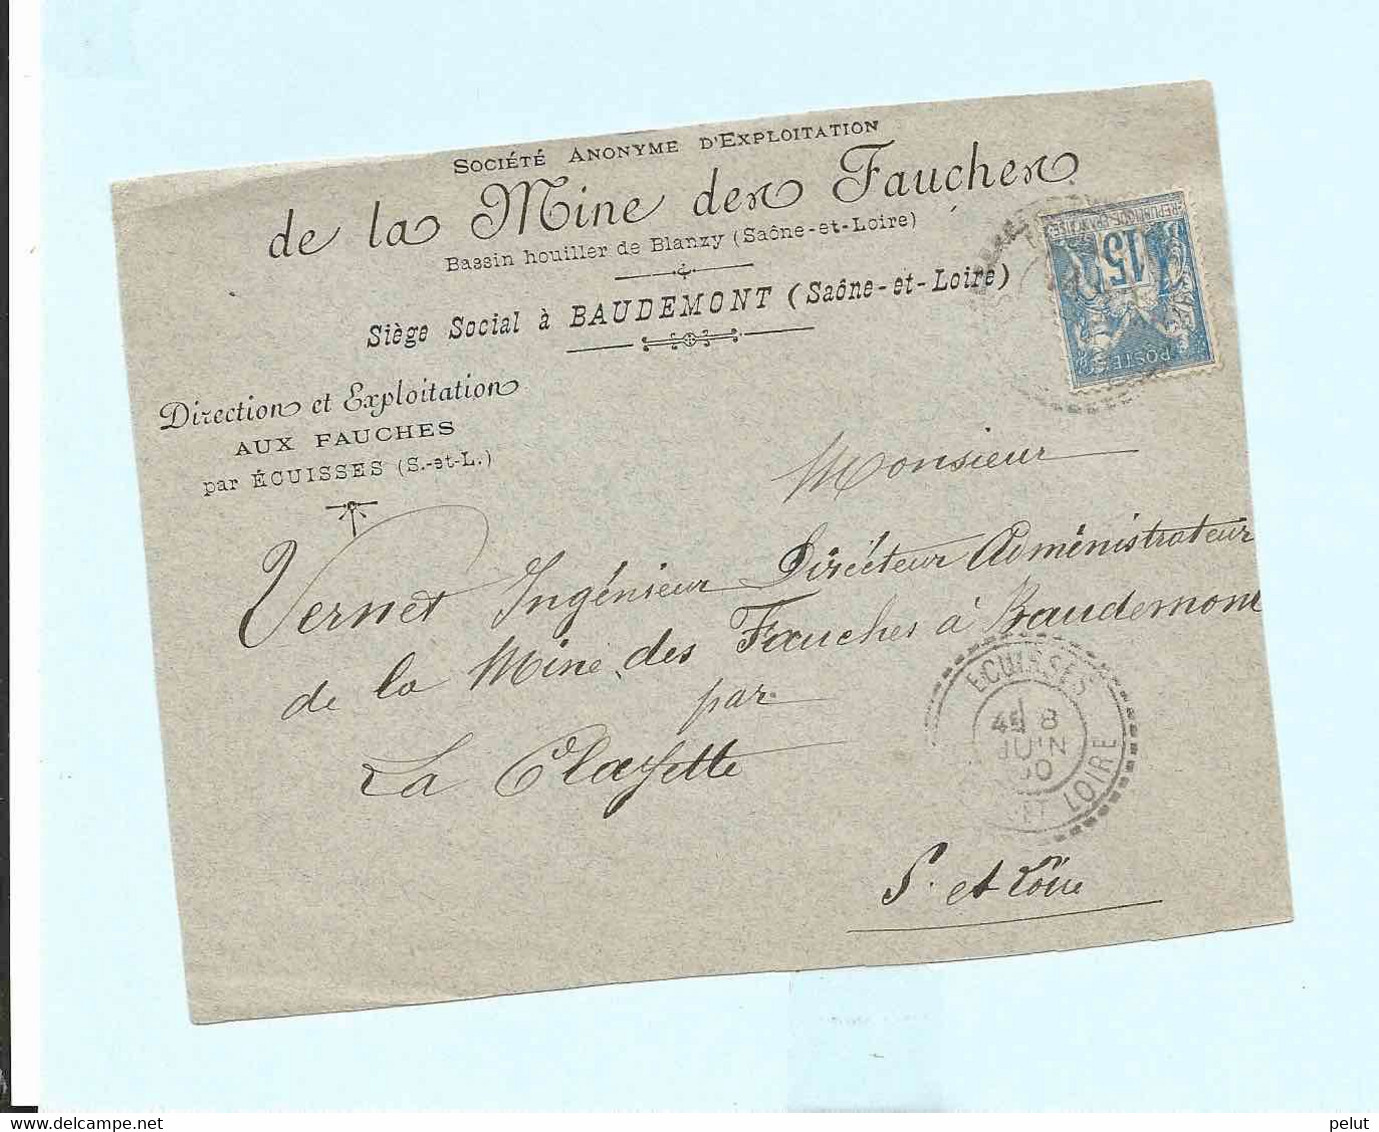 SOCIÉTÉ ANONYME D'EXPLOITATION
de la Mine des Fauches
Bassin houiller de Blanzy (Saône-et-Loire)
Siège Social à BAUDEMONT (Saône-et-Loire)
Direction et Exploitation
AUX FAUCHES
par ÉCUISSES (S.-et-L.)
REPUBLIQUE FRANÇAISE
15
POSTES
Monsieur
Vernet Ingénieur Directeur Administrateur
de la Mine des Fauches à Baudemont
par
La Clayette
S. et Loire
ECUISSES
8
JUIN
ET LOIRE
pelut